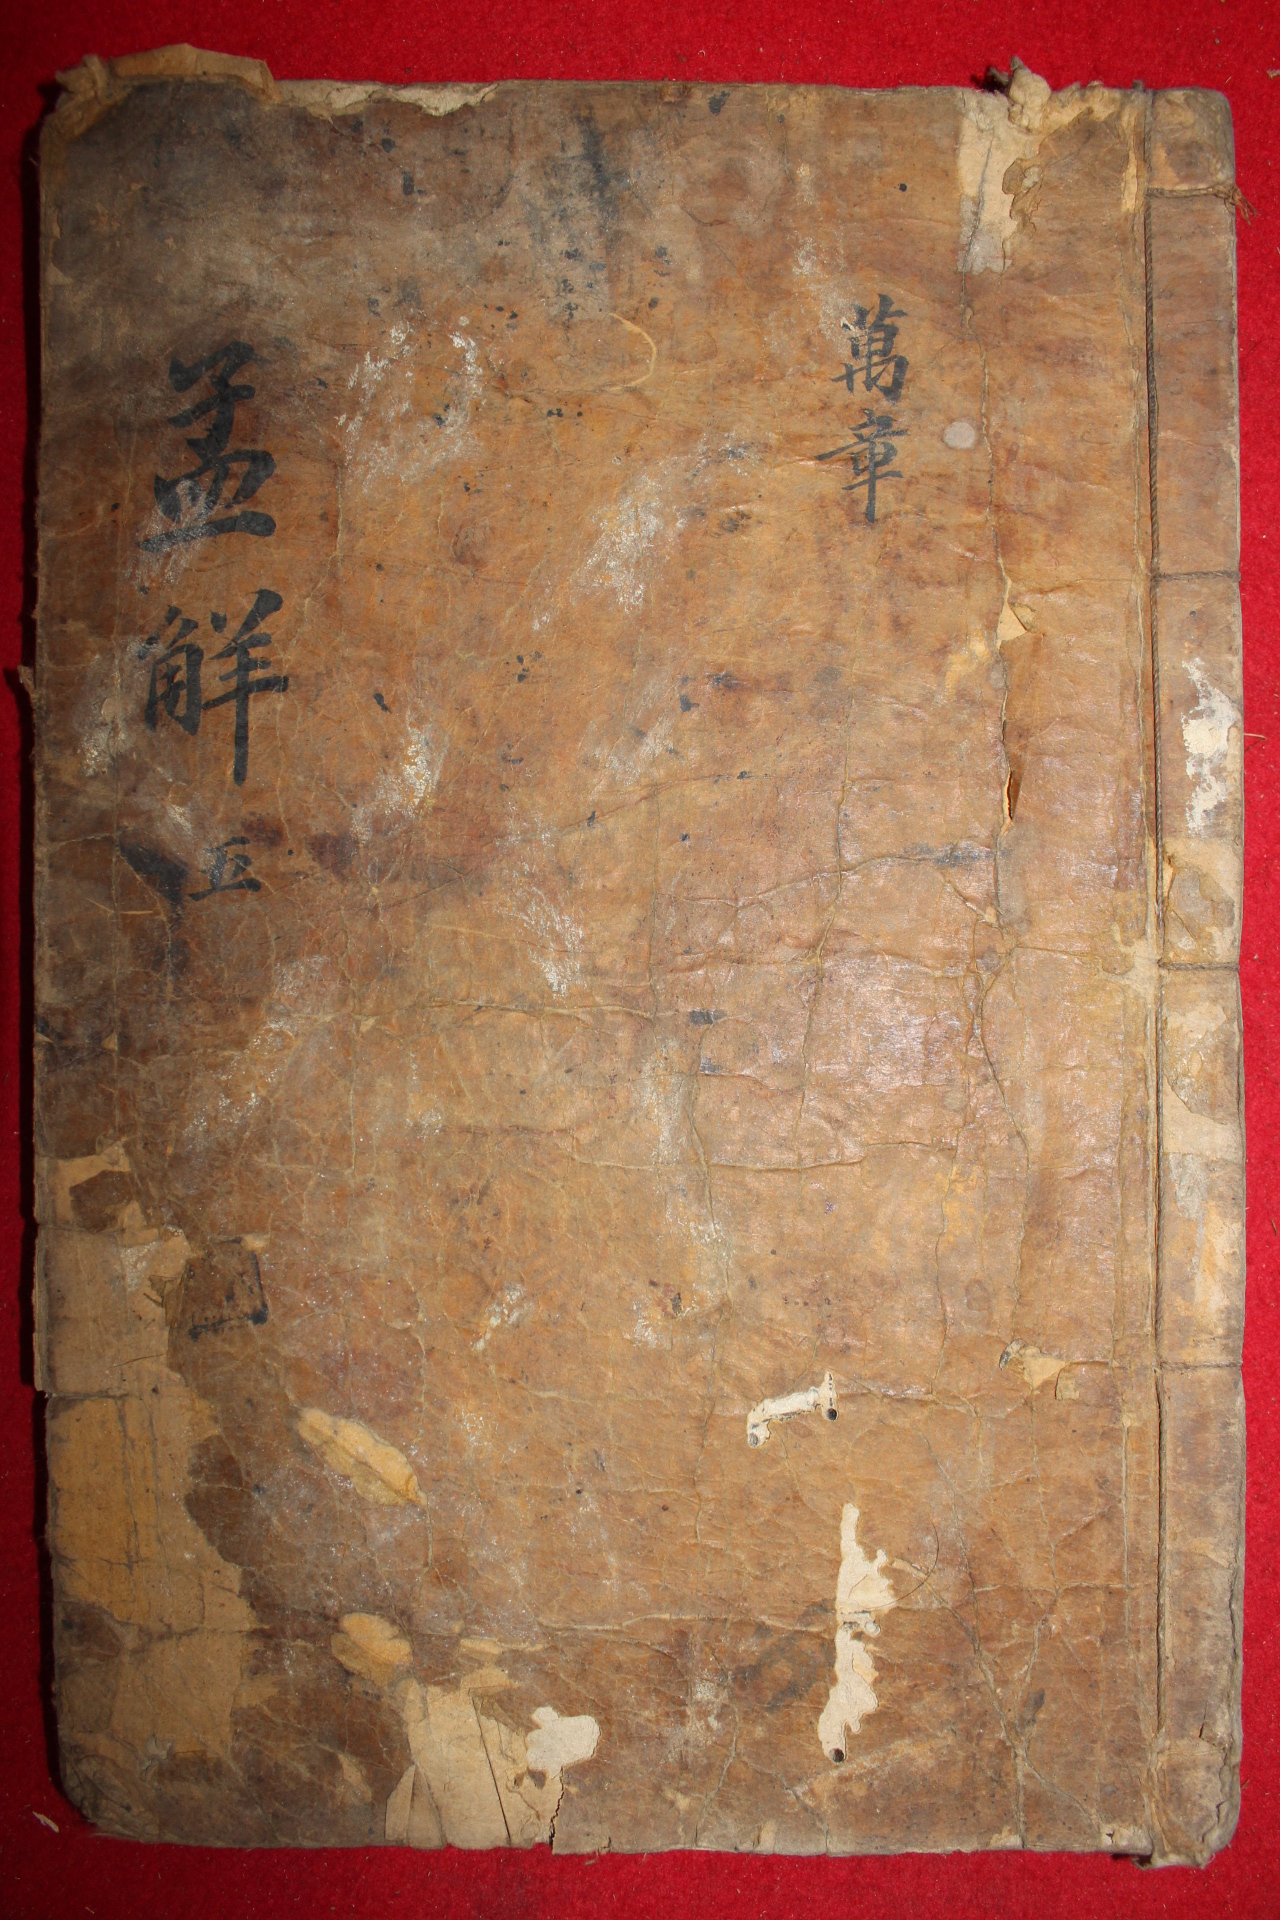 萬章
孟觧 五